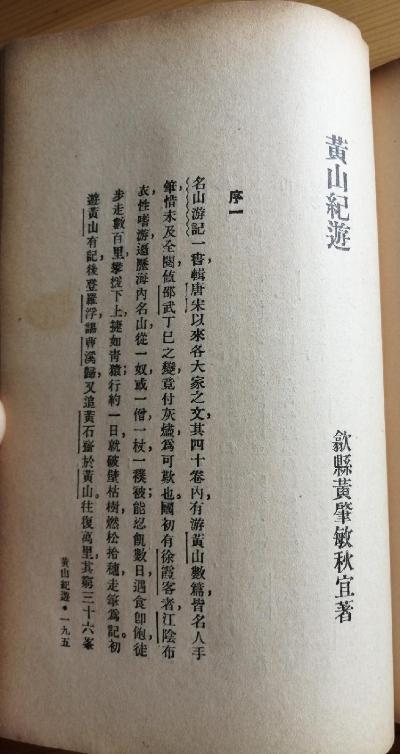 黃山紀遊
歙縣黃肇敏秋宜著
序一
名山游記一書輯唐宋以來各大家之文其四十卷內有游黃山數篇皆名人手
筆惜未及全閱值邵武丁巳之變竟付灰燼爲可歎也國初有徐霞客者江陰布
衣性嗜游遍歷海內名山從一奴或一僧一杖一襆被能忍飢數日遇食即飽徒
步走數百里攀援下上捷如青猿行約一日就破壁枯樹燃松拾穗走筆爲記初
遊黃山有記後登羅浮謁曹溪歸又追黃石齋於黃山往復萬里其窮三十六峯
黃山紀遊・一九五